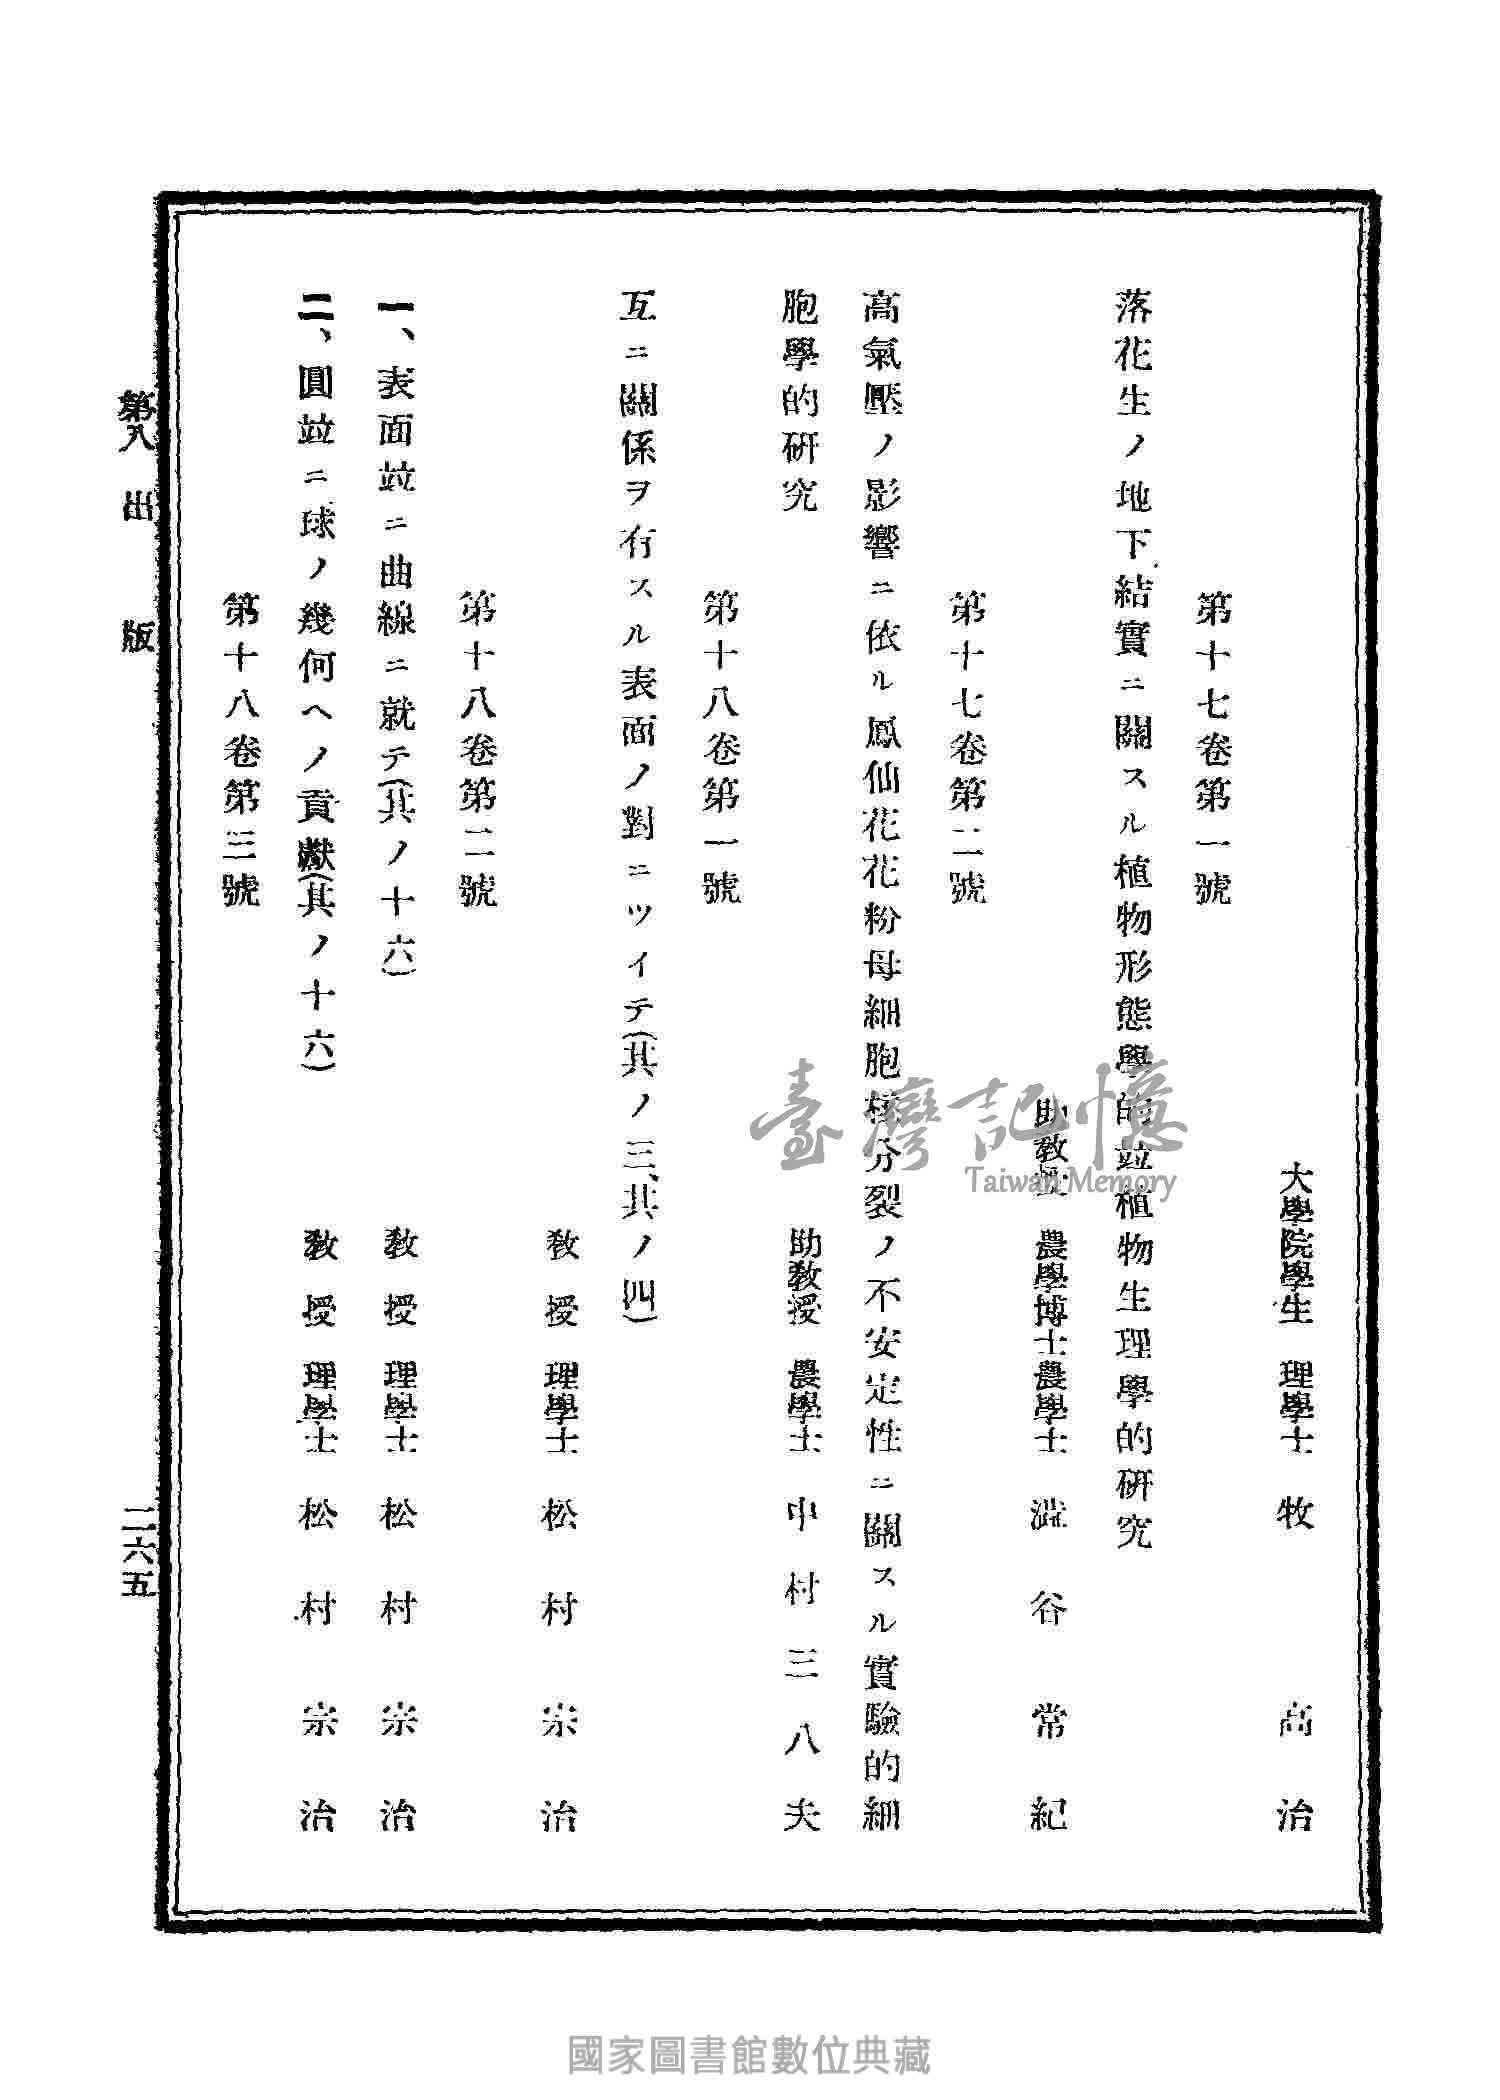 大學院學生 理學士 牧高治
第十七卷第一號
落花生ノ地下結實ニ關スル植物形態學的竝植物生理學的研究
助敎授 農學博士農學士 澁谷常紀
第十七卷第二號
高氣壓ノ影響ニ依ル鳳仙花花粉母細胞核分裂ノ不安定性ニ關スル實驗的細
胞學的研究
助敎授 農學士 中村三八夫
第十八卷第一號
互ニ關係ヲ有スル表面ノ對ニツイテ(其ノ三、其ノ四)
敎授 理學士 松村宗治
第十八卷第二號
一、表面竝ニ曲線ニ就テ(其ノ十六)
敎授 理學士 松村宗治
二、圓竝ニ球ノ幾何ヘノ貢獻(其ノ十六)
敎授 理學士 松村宗治
第十八卷第三號
第八 出版
二六五
臺灣記憶
Taiwan Memory
國家圖書館數位典藏